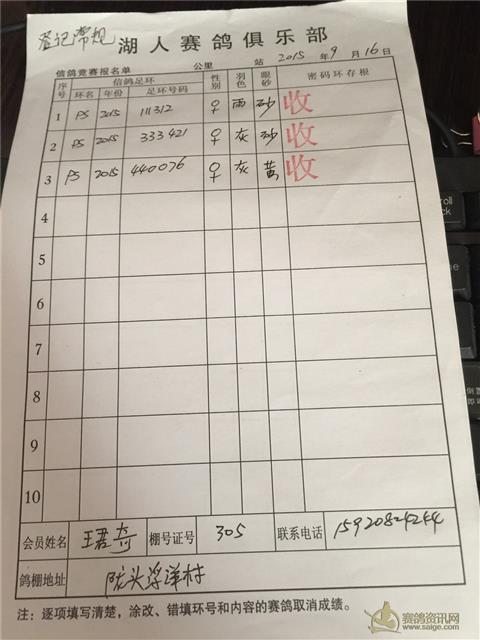 登记常规 湖人赛鸽俱乐部
信鸽竞赛报名单 公里 站 2015 年 9 月 16 日
序号 信鸽足环 性别 羽色 眼砂 密码环存根
环名 年份 足环号码
1 PS 2015 111312 ♀ 雨 砂 收
2 PS 2015 333421 ♀ 灰 砂 收
3 PS 2015 440076 ♀ 灰 黄 收
4
5
6
7
8
9
10
会员姓名 王君奇 棚号证号 305 联系电话 15920824244
鸽棚地址 陇头浮洋村
注：逐项填写清楚，涂改、错填环号和内容的赛鸽取消成绩。
赛鸽资讯网
www.saige.com